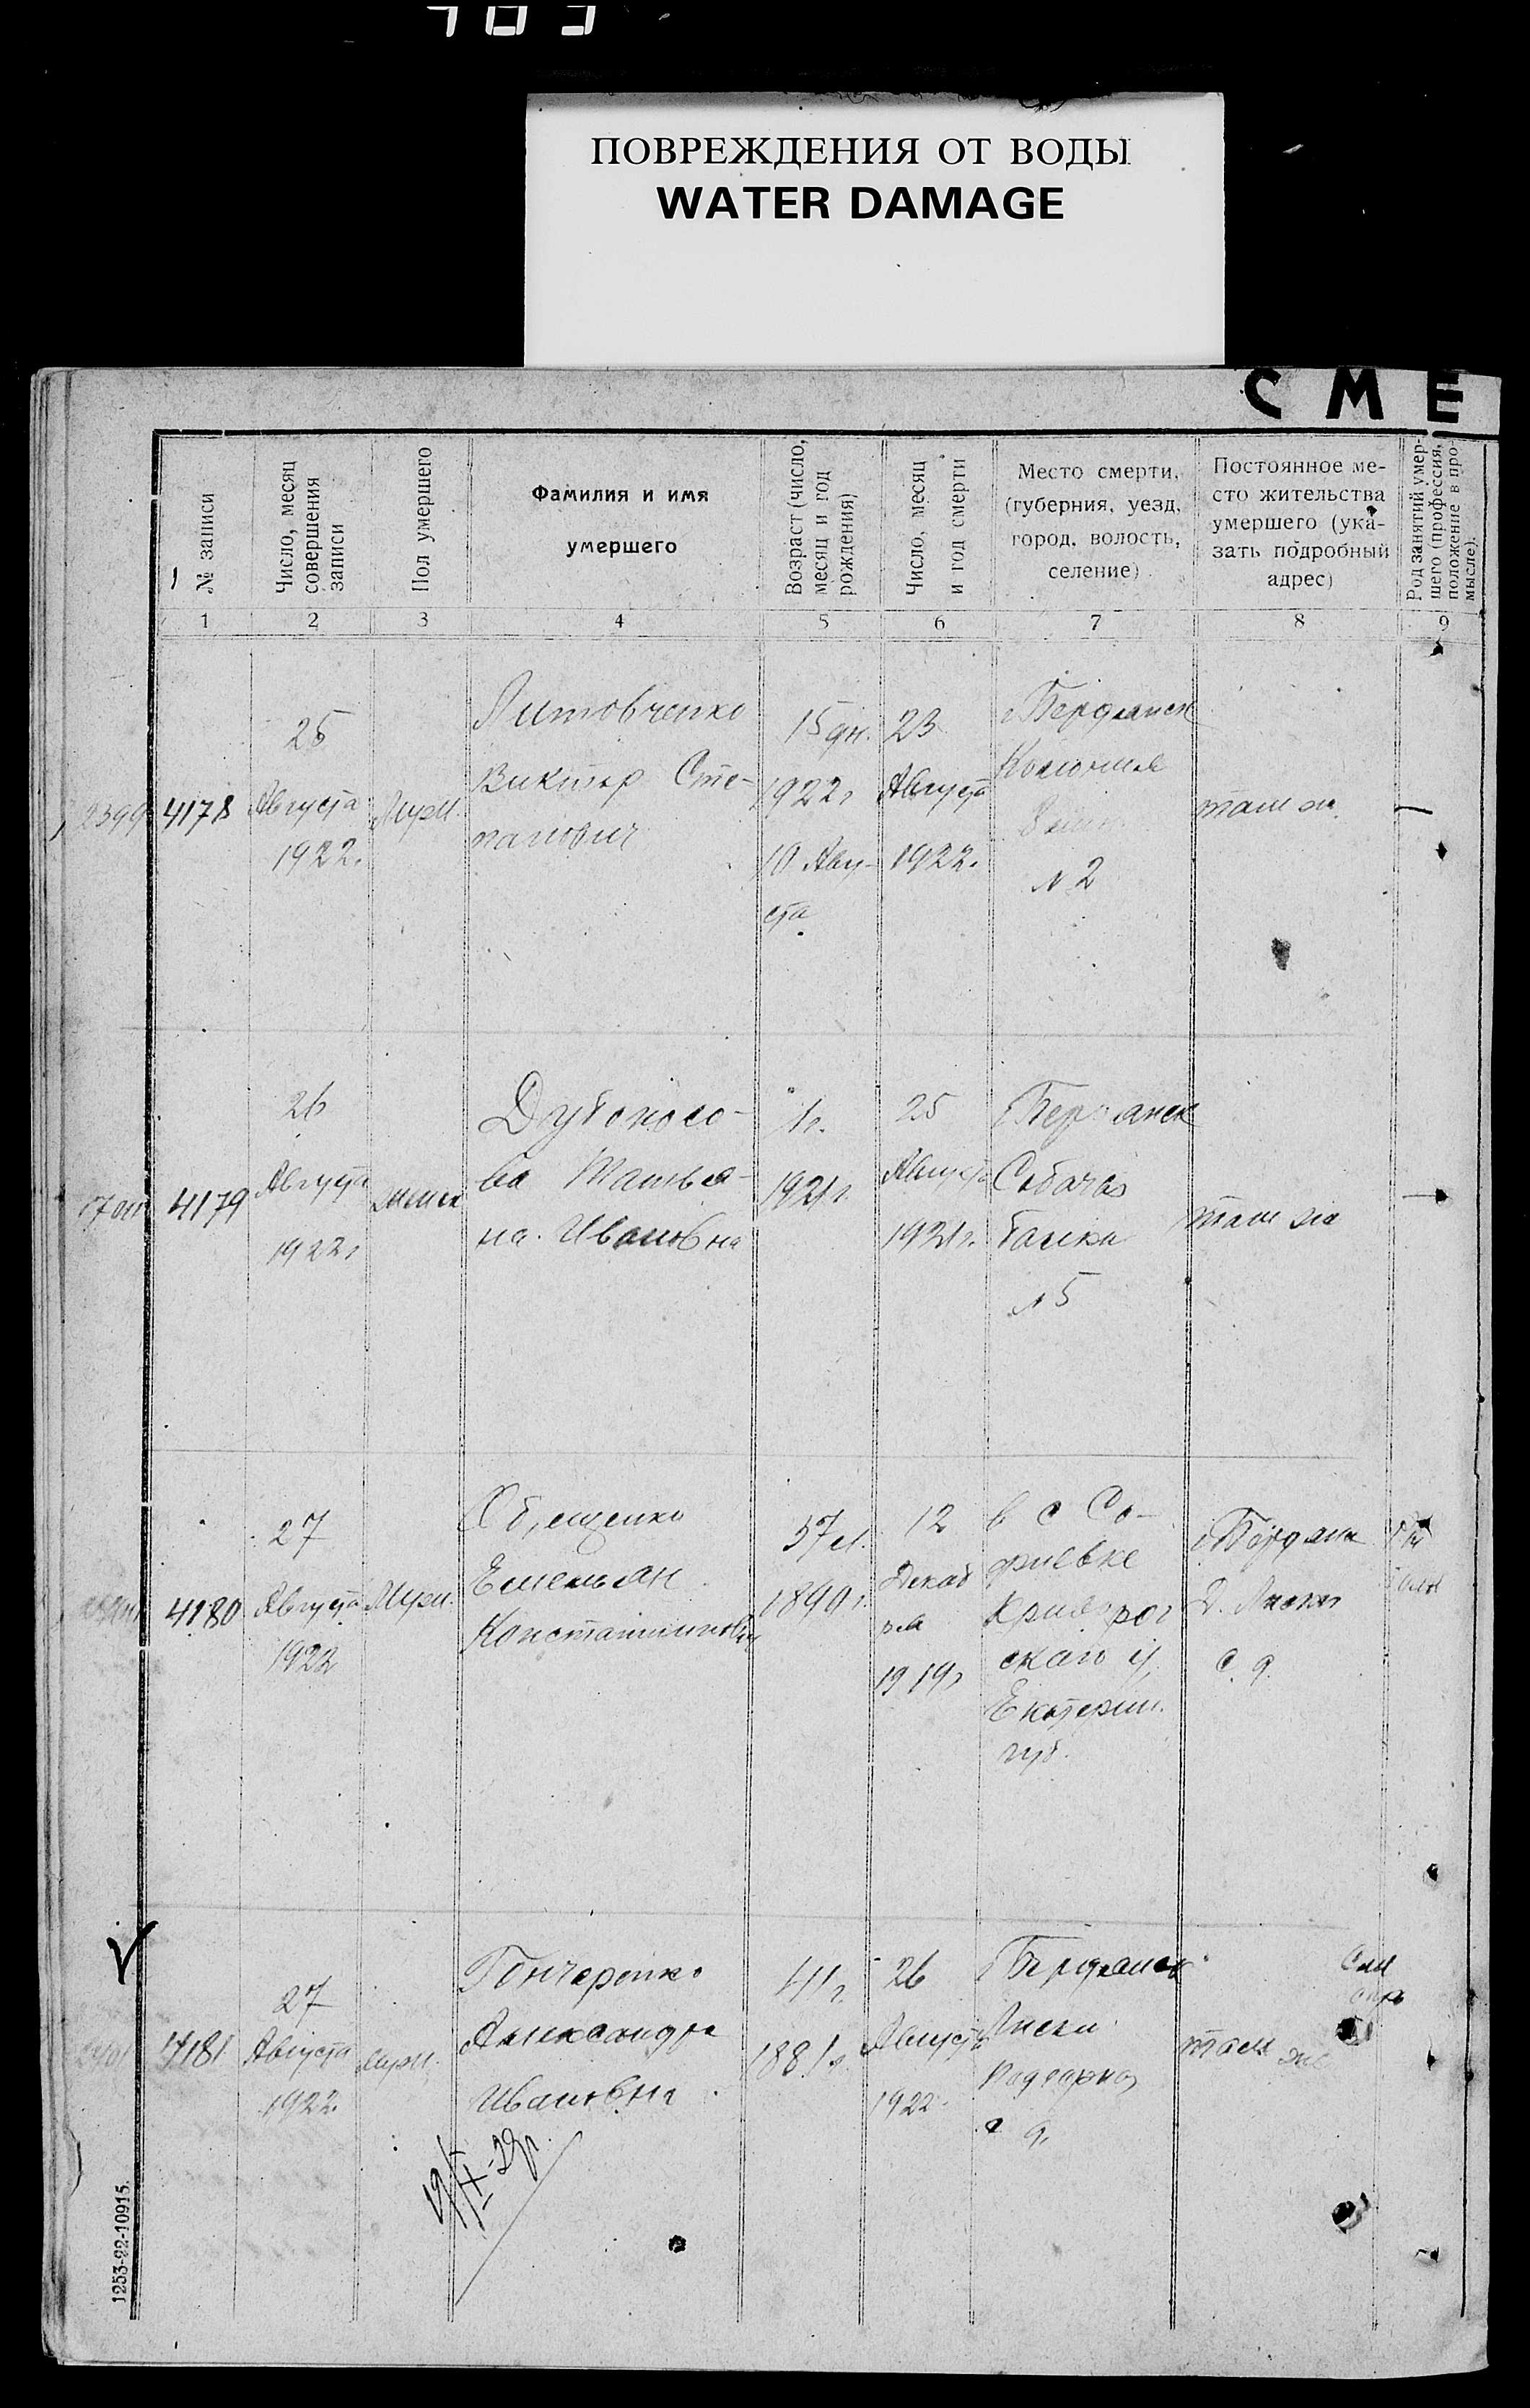 ПОВРЕЖДЕНИЯ ОТ ВОДЫ
WATER DAMAGE
СМЕ
№ записи
Число, месяц
совершения
записи
Пол умершего
Фамилия и имя
умершего
Возраст (число,
месяц и год
рождения)
Число, месяц
и год смерти
Место смерти,
(губерния, уезд,
город, волость,
селение)
Постоянное ме-
сто жительства
умершего (ука-
зать подробный
адрес)
Род занятий умер-
шего (профессия,
положение в про-
мысле).
1 2 3 4 5 6 7 8 9
2399
4178
25
Августа
1922.
Муж.
Литовченко
Виктор Сте-
панович
15 дн.
1922 г
10 Авгу-
ста
23
Августа
1922.
г Бердянск
Колония
№ 2
там же
4179
26
Августа
1922 г
женск
Дубоносо-
ва Татья-
на Ивановна
1 г.
1921 г
25
Августа
1921 г.
г Бердянск
Собачая
балка
№ 5
там же
4180
27
Августа
1922
Муж.
Емельян
Константинович
37 л.
1890 г.
12
Декаб
ря
1919 г
в с Со-
фиевке
Криворог
скаго у,
Екатерин.
губ.
г Бердянск
с. д.
4181
27
Августа
1922.
муж.
Гончаренко
Александра
Ивановна
41 г.
1881 г.
26
Августа
1922.
г Бердянск
Лиски
с д.
там же
19/IX-29г.
1253-92-10915.